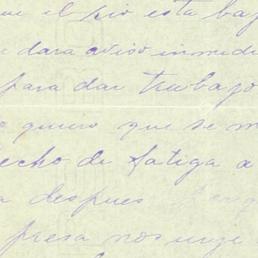 ue el rio esta baj
dara aviso inmedi
para dar trabajo
quiero que se m
echo de fatiga a
a despues
presa nos urge